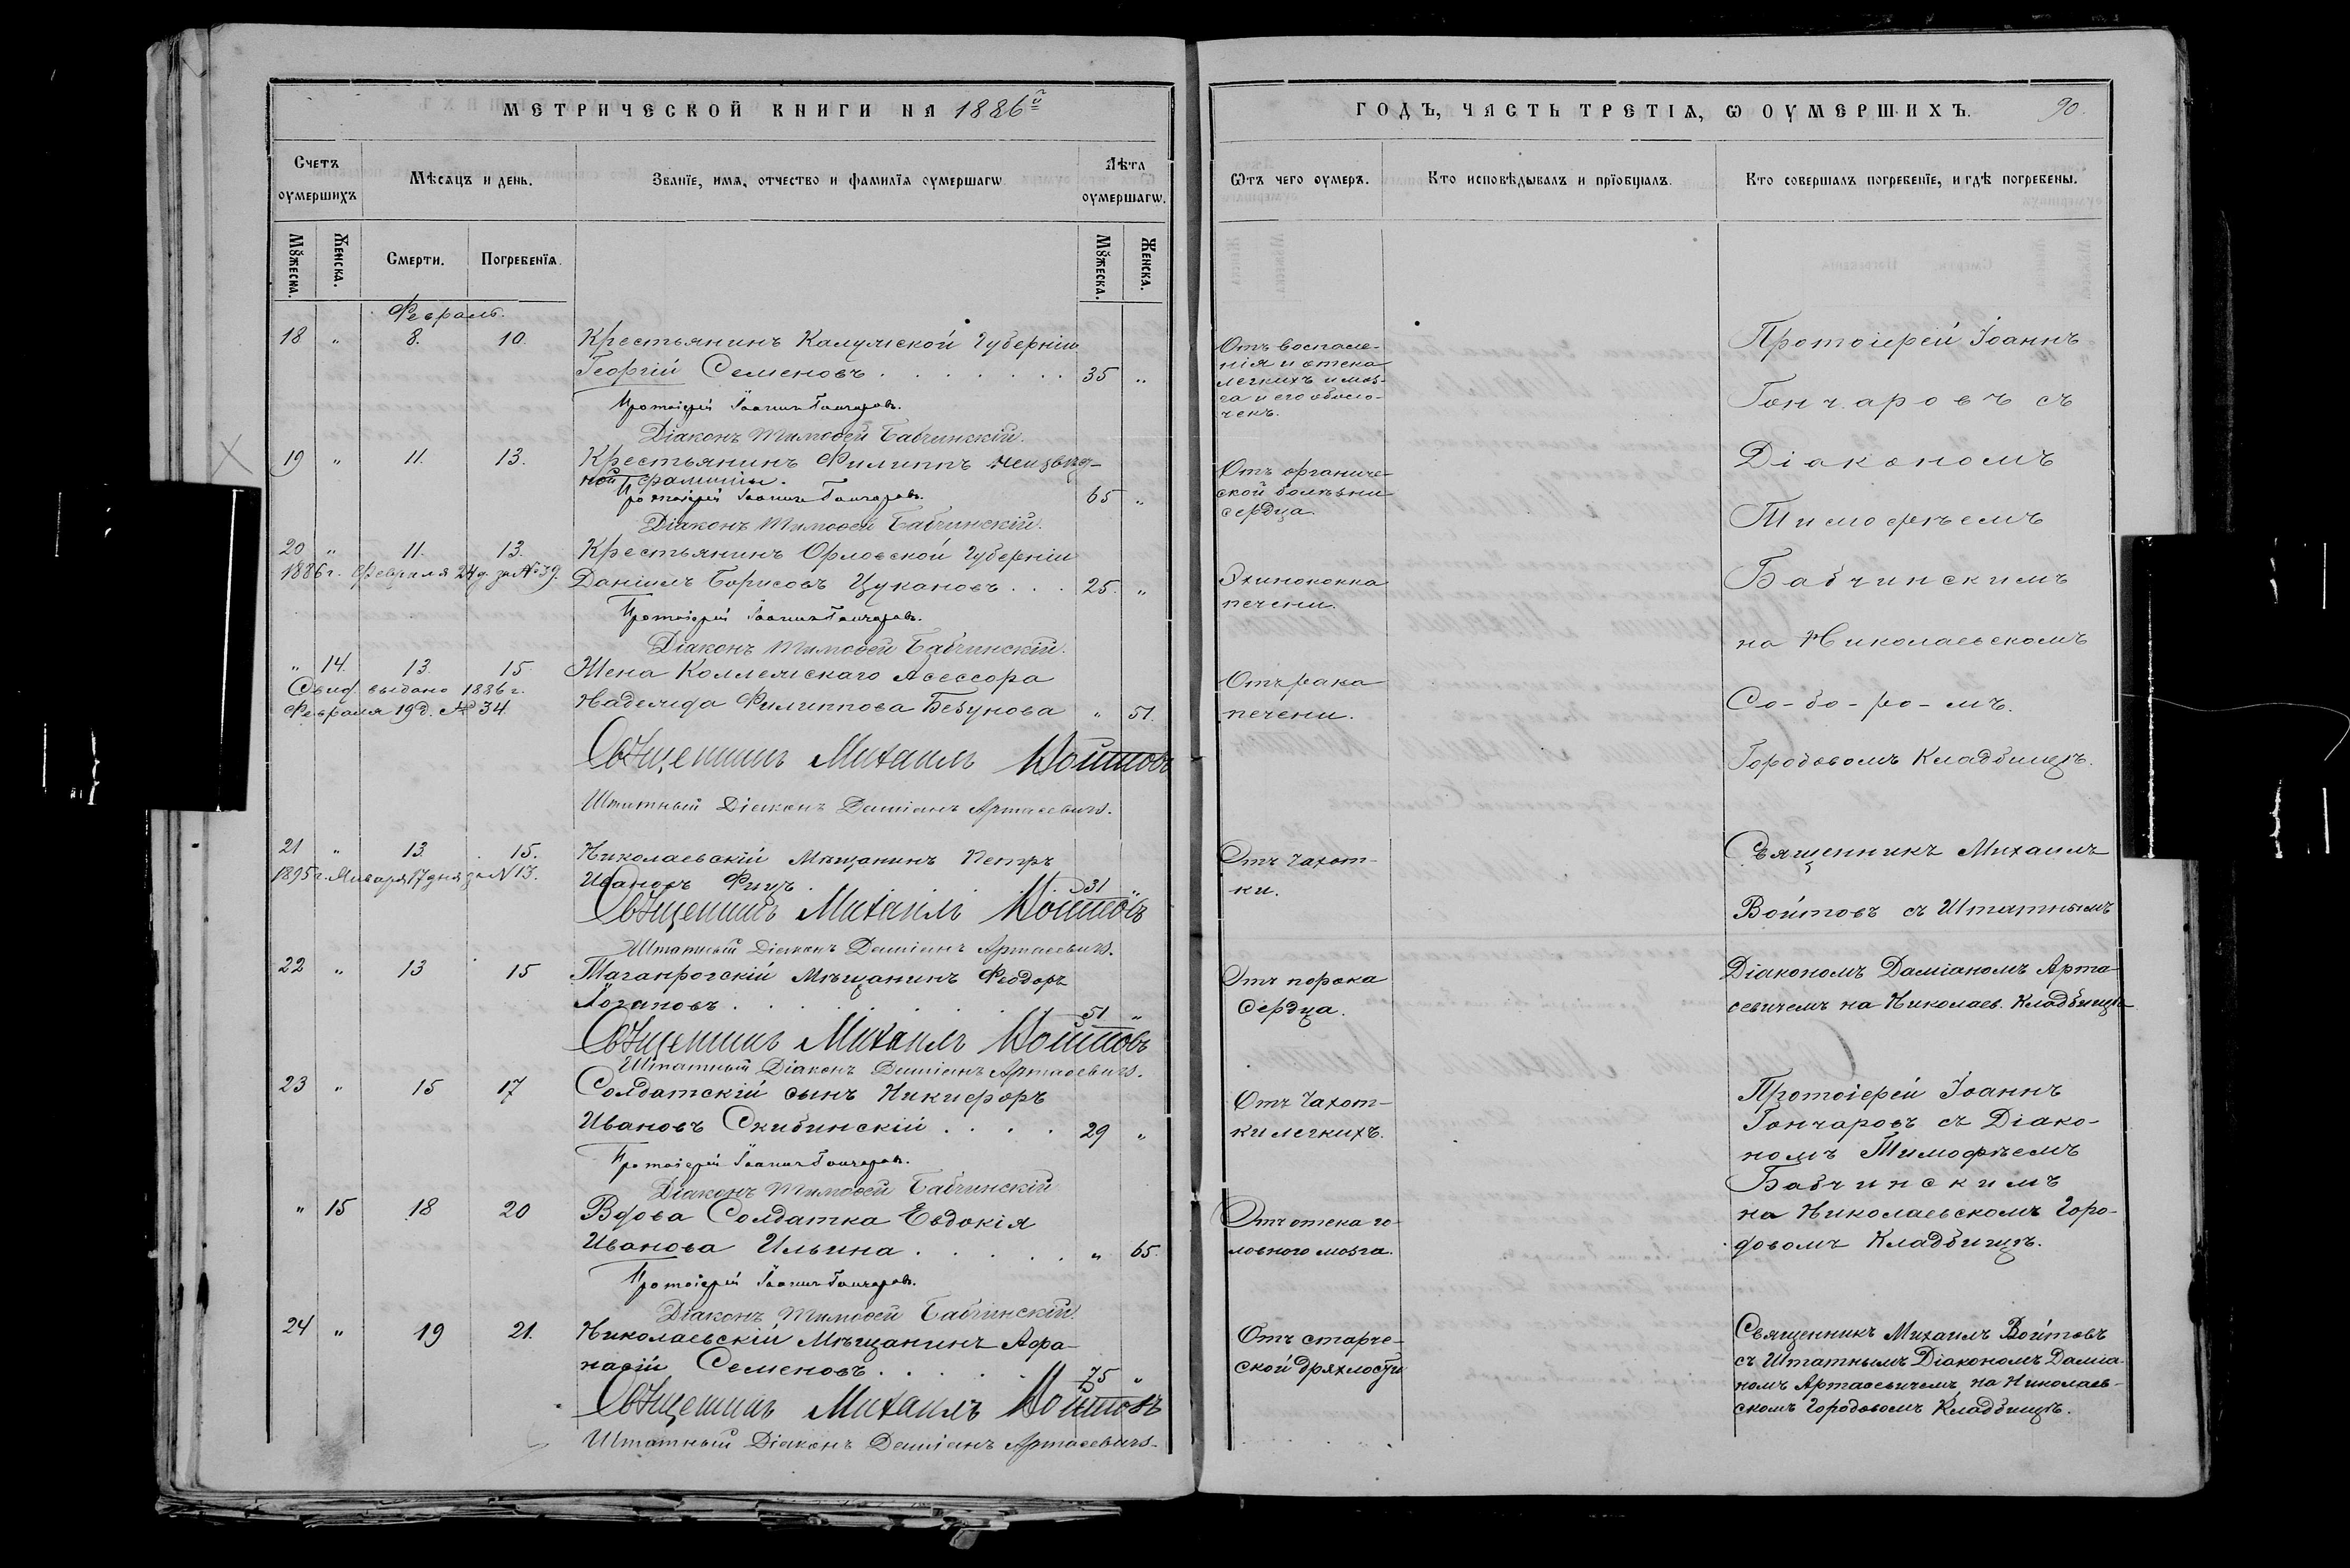 МЕТРИЧЕСКОЙ КНИГИ НА 1886й
Счетъ оумершихъ
Мѣсяцъ и день.
Званїе, имя, отчество и фамилїя оумершагѡ
Лѣта оумершагѡ.
Мꙋжеска.
Женска.
Смерти.
Погребенїя.
Мꙋжеска.
Женска.
Февраль.
18 " 8. 10. Крестьянинъ Калужской Губерніи
Георгій Семеновъ . . . . . . . 35 "
Протоіерей Іоаннъ Гончаровъ.
Діаконъ Тимоѳей Бабчинскій.
19 " 11. 13. Крестьянинъ Филиппъ неизвѣд-
ной фамиліи.
Протоіерей Іоаннъ Гончаровъ. 65 "
Діаконъ Тимоѳей Бабчинскій.
20 " 11. 13. Крестьянинъ Орловской Губерніи
1886 г. Февраля 24 д. за № 39. Даніилъ Борисовъ Цукановъ . . . 25. "
Протоіерей Іоаннъ Гончаровъ.
Діаконъ Тимоѳей Бабчинскій.
" 14. 13. 15 Жена Коллежскаго Асессора
Свид. выдано 1886 г.
Февраля 19 д. № 34. Надежда Филиппова Безунова " 51.
Священникъ Михаилъ Войтовъ
Штатный Діаконъ Даміанъ Артасевичъ.
21 " 13 15. Николаевскій Мѣщанинъ Петръ
1895 г. Января 17 дня за № 13. Ивановъ Фицъ . . . 31 "
Священникъ Михаилъ Войтовъ
Штатный Діаконъ Даміанъ Артасевичъ.
22 " 13 15 Таганрогскій Мѣщанинъ Феодоръ
Лозановъ . . . . . . 51 "
Священникъ Михаилъ Войтовъ
Штатный Діаконъ Даміанъ Артасевичъ.
23 " 15 17 Солдатскій сынъ Никифоръ
Ивановъ Скибинскій . . . . 29 "
Протоіерей Іоаннъ Гончаровъ.
Діаконъ Тимоѳей Бабчинскій
" 15 18 20 Вдова Солдатка Евдокія
Иванова Ильина . . . . . " 65.
Протоіерей Іоаннъ Гончаровъ.
Діаконъ Тимоѳей Бабчинскій.
24 " 19 21. Николаевскій Мѣщанинъ Афа-
насій Семеновъ . . . . 75 "
Священникъ Михаилъ Войтовъ
Штатный Діаконъ Даміанъ Артасевичъ.
ГОДЪ, ЧАСТЬ ТРЕТІЯ, Ѡ ОУМЕРШИХЪ. 90.
Ѿтъ чего оумеръ.
Кто исповѣдывалъ и прїобщалъ.
Кто совершалъ погребенїе, и гдѣ погребены.
Отъ воспале-
нія и отека
легкихъ и моз-
га и его оболо-
чекъ.
Отъ органиче-
ской болѣзни
сердца.
Эхинококка
печени.
Отъ рака
печени.
Отъ чахот-
ки.
Отъ порока
Сердца.
Отъ чахот-
ки легкихъ.
Отъ отека го-
ловного мозга.
Отъ старче-
ской дряхлости
Протоіерей Іоаннъ
Гончаровъ съ
Діакономъ
Тимофѣемъ
Бабчинскимъ
на Николаевскомъ
Со-бо-ро-мъ.
Городовомъ Кладбищѣ.
Священникъ Михаилъ
Войтовъ съ Штатнымъ
Діакономъ Даміаномъ Арта-
севичемъ на Николаев. Кладбищѣ
Протоіерей Іоаннъ
Гончаровъ съ Діако-
номъ Тимофѣемъ
Бабчинскимъ
на Николаевскомъ Горо-
довомъ Кладбищѣ.
Священникъ Михаилъ Войтовъ
съ Штатнымъ Діакономъ Даміа-
номъ Артасевичемъ на Николаев-
скомъ Городовомъ Кладбищѣ.